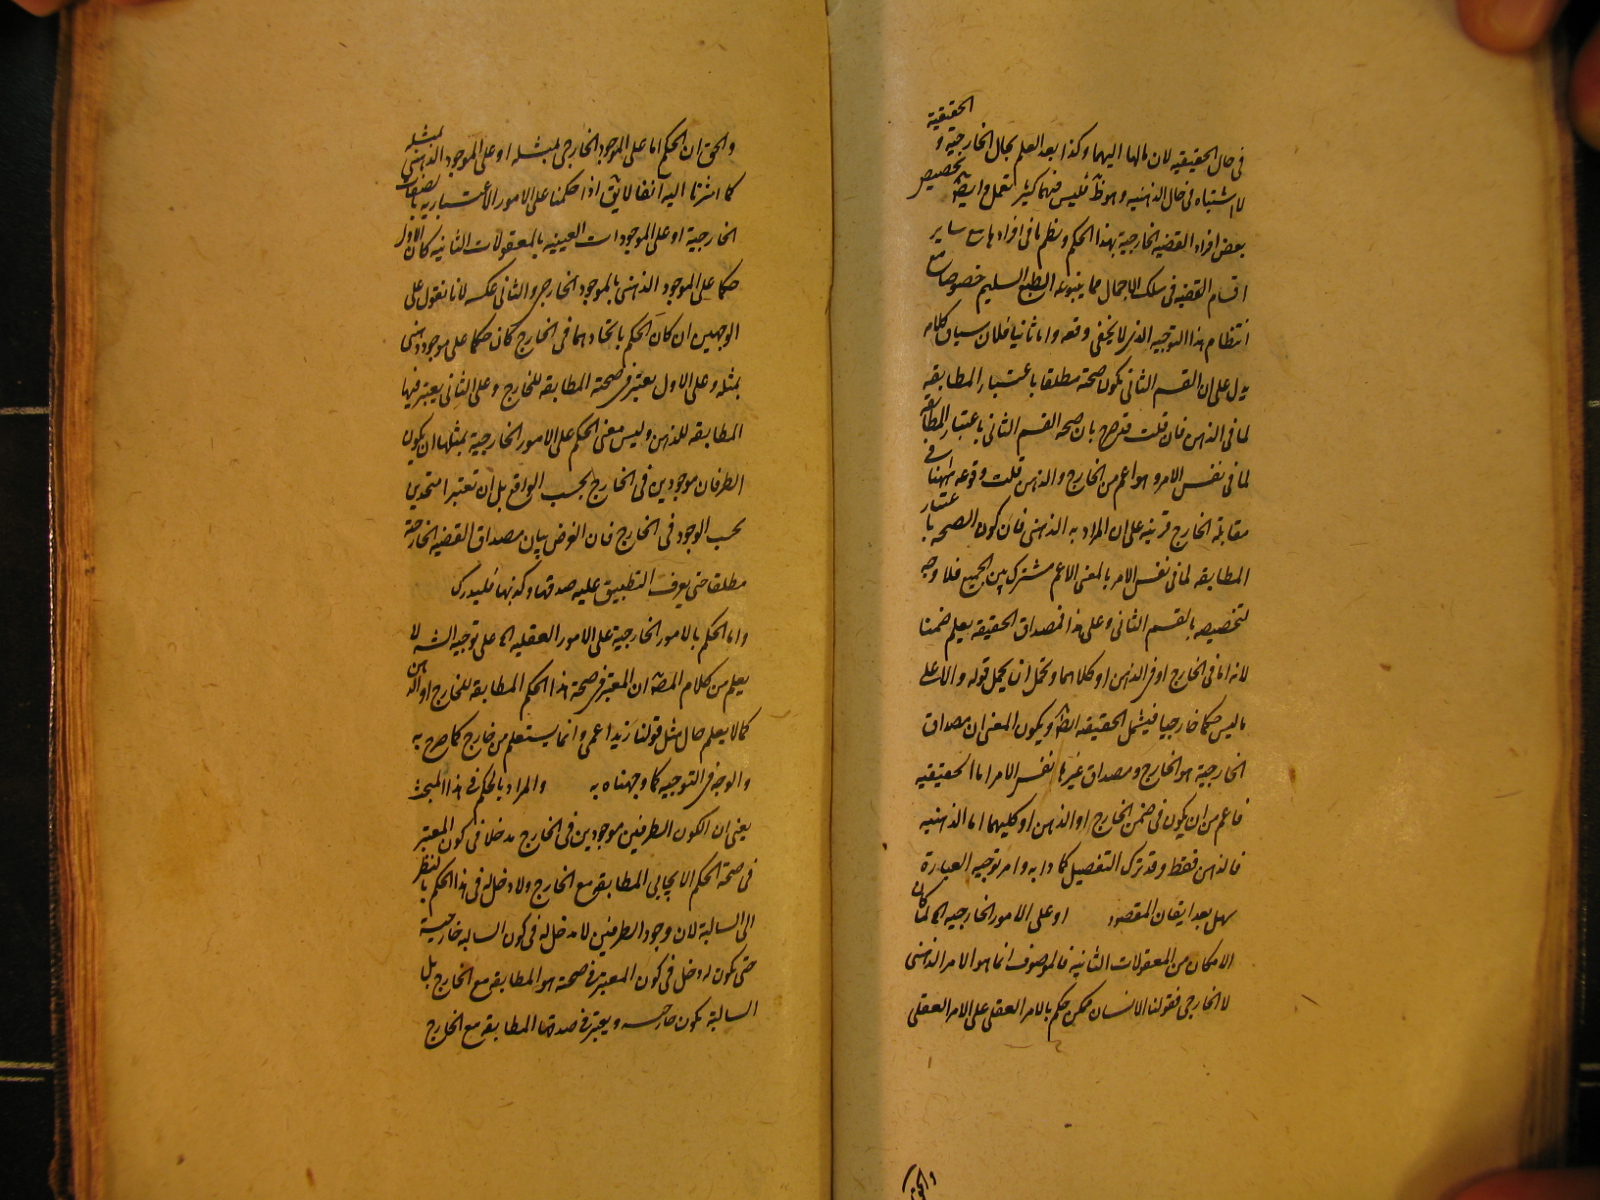 في حال الحقيقية لان مالها اليهما وكذا بعد العلم بحال الخارجية و الحقيقية
لا اشتباه في حال الذهنية وهو ظ فليس فيهما كثير تعمل وايضا تخصيص
بعض افراد القضية الخارجية بهذا الحكم ونظم باقي افرادها مع ساير
اقسام القضية في سلك الاجمال مما ينبو عنه الطبع السليم خصوصا مع
انتظام هذا التوجيه الذي لا يخفى وقعه واما ثانيا فلان سياق كلامه
يدل على ان القسم الثاني يكون صحته مطلقا باعتبار المطابقة
لما في الذهن فان قلت قد صرح بان صحه القسم الثاني باعتبار المطابقة
لما في نفس الامر وهو اعم من الخارج والذهن قلت وقوعه ههنا في
مقابلة الخارج قرينه على ان المراد به الذهني فان كون الصحه باعتبار
المطابقه لما في نفس الامر بالمعنى الاعم مشترك بين الجميع فلا وجه
لتخصيصه بالقسم الثاني وعلى هذا فمصداق الحقيقه يعلم ضمنا
لانه اما في الخارج او في الذهن او كلاهما ويحتمل ان يحمل قوله والا على
ما ليس حكما خارجيا فيشمل الحقيقيه ايضا ويكون المعنى ان مصداق
الخارجية هو الخارج ومصداق غيرها نفس الامر اما الحقيقيه
فاعم من ان يكون في ضمن الخارج او الذهن او كليهما اما الذهنيه
فالذهن فقط وقد ترك التفصيل كما دابه وامر توجيه العبارة
سهل بعد ايقان المقصود او على الامور الخارجيه الخ لما كان
الامكان من المعقولات الثانيه فالموصوف انما هو الامر الذهني
لا الخارجي فقولنا الانسان ممكن حكم بالامر العقلي على الامر العقلي
والحق
والحق ان الحكم اما على الموجود الخارجي بمثله او على الموجود الذهني بمثله
كما اشرنا اليه انفا لا يق اذا حكمنا على الامور الاعتباريه بالصفات
الخارجية او على الموجودات العينيه بالمعقولات الثانيه كان الاول
حكما على الموجود الذهني بالموجود الخارجي والثاني عكسه لانا نقول على
الوجهين ان كان الحكم باتحادهما في الخارج كان حكما على موجود ذهني
بمثله وعلى الاول يعتبر في صحته المطابقه للخارج وعلى الثاني يعتبر فيها
المطابقه للذهن وليس معنى الحكم على الامور الخارجية بمثلها ان يكون
الطرفان موجودين في الخارج بحسب الواقع بل ان تعتبرا متحدين
بحسب الوجود في الخارج فان الغرض بيان مصداق القضيه الخارجة
مطلقا حتى يعرف التطبيق عليه صدقها وكذبها فليدرك
واما الحكم بالامور الخارجية على الامور العقليه الخ على توجيه الش لا
يعلم من كلام المص ان المعتبر في صحة هذا الحكم المطابقه للخارج او الذهن
كما لا يعلم حال مثل قولنا زيد اعمى وانما يستعلم من خارج كما صرح به
والوجه في التوجيه كما وجهناه به والمراد بالحكم في هذا المبحث
يعني ان لكون الطرفين موجودين في الخارج مدخلا في كون المعتبر
في صحة الحكم الايجابي المطابقه مع الخارج ولا دخل له في هذا الحكم بالنظر
الى السالبة لان وجود الطرفين لا مدخل له في كون السالبة خارجية
حتى يكون له دخل في كون المعتبر في صحته هو المطابقه مع الخارج بل
السالبة يكون خارجيه ويعتبر في صدقها المطابقه مع الخارج